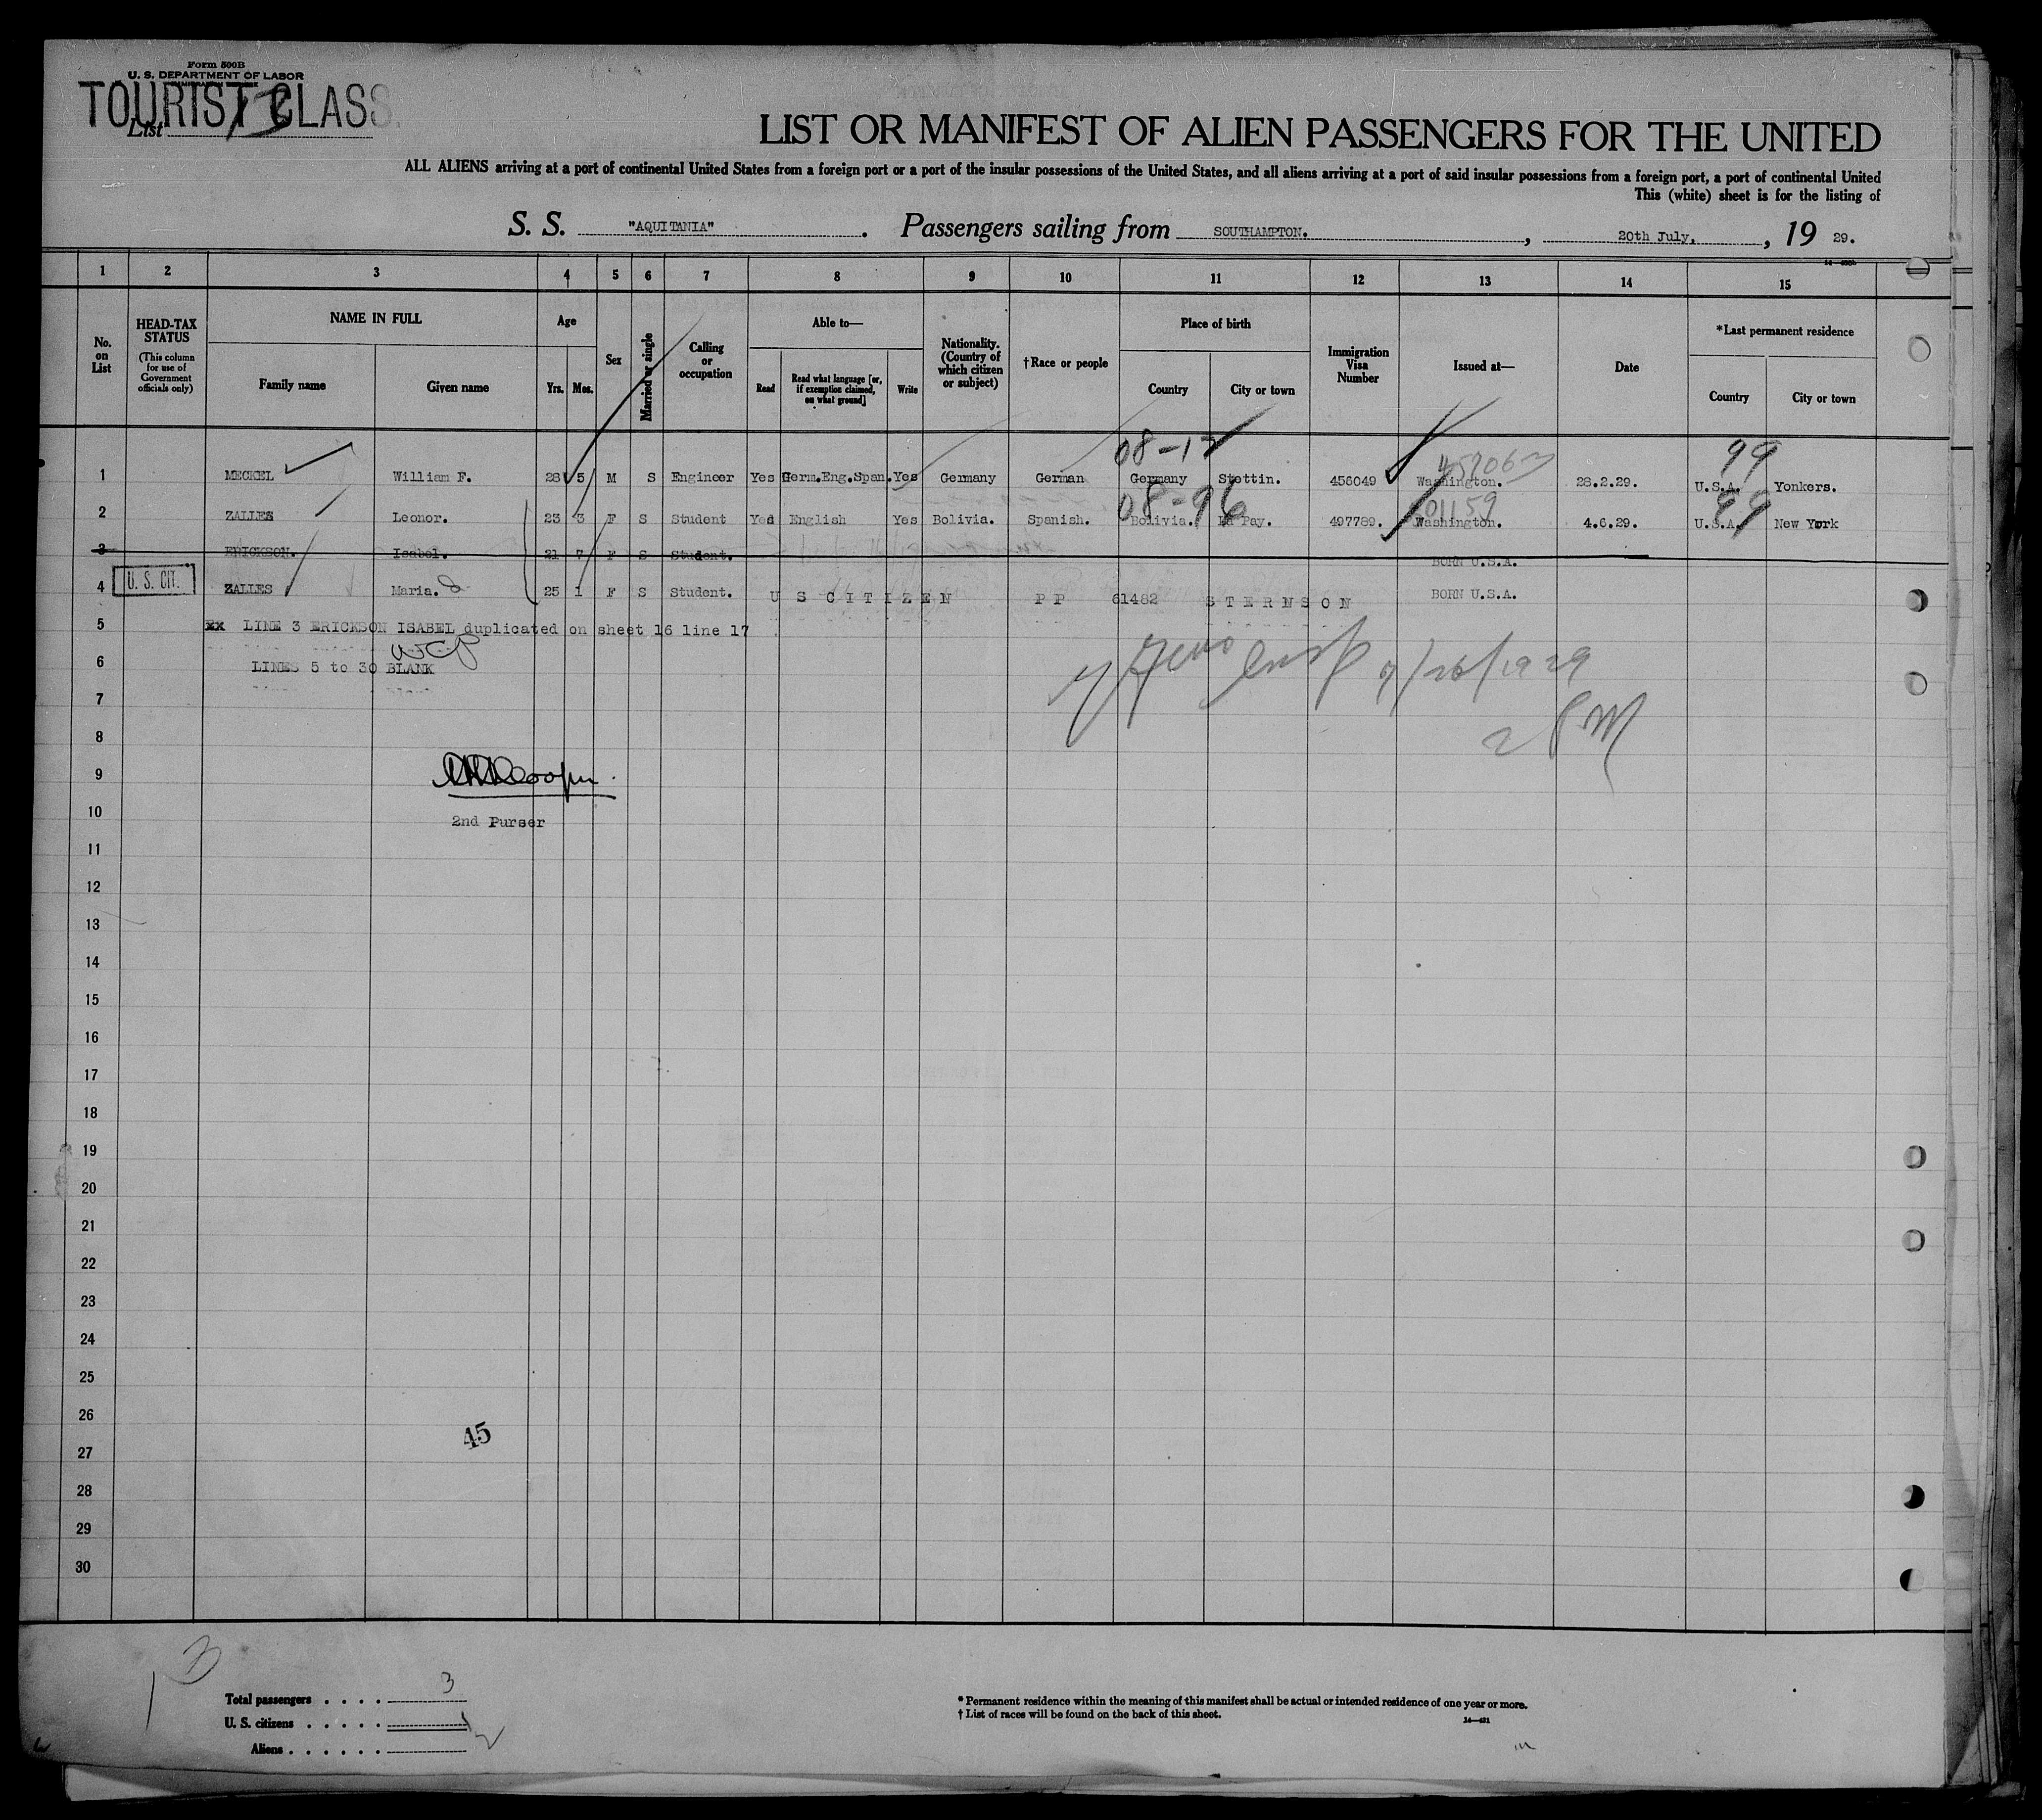 Form 500B
U. S. DEPARTMENT OF LABOR
TOURIST CLASS.
List
LIST OR MANIFEST OF ALIEN PASSENGERS FOR THE UNITED
ALL ALIENS arriving at a port of continental United States from a foreign port or a port of the insular possessions of the United States, and all aliens arriving at a port of said insular possessions from a foreign port, a port of continental United
This (white) sheet is for the listing of
S. S. "AQUITANIA". Passengers sailing from SOUTHAMPTON., 20th July., 19 29.
1 2 3 4 5 6 7 8 9 10 11 12 13 14 15
No. on List
HEAD-TAX STATUS
(This column for use of Government officials only)
NAME IN FULL
Family name
Given name
Age
Yrs. Mos.
Sex
Married or single
Calling or occupation
Able to—
Read
Read what language [or, if exemption claimed, on what ground]
Write
Nationality. (Country of which citizen or subject)
†Race or people
Place of birth
Country
City or town
Immigration Visa Number
Issued at—
Date
*Last permanent residence
Country
City or town
08-12 99
1 MECKEL William F. 28 5 M S Engineer Yes Germ.Eng.Span. Yes Germany German Germany Stettin. 456049 Washington. 28.2.29. U.S.A. Yonkers.
08-96 99
2 ZALLES Leonor. 23 3 F S Student Yes English Yes Bolivia. Spanish. Bolivia. La Pay. 497789. Washington. 4.6.29. U.S.A. New York
3 ERICKSON. Isabel. 21 7 F S Student. BORN U.S.A.
4 U. S. CIT. ZALLES Maria. 25 1 F S Student. U S CITIZEN PP 61482 STERNSON BORN U.S.A.
5 Ex LINE 3 ERICKSON ISABEL duplicated on sheet 16 line 17
6 LINES 5 to 30 BLANK
7/26/1929
7
8
9
10 2nd Purser
11
12
13
14
15
16
17
18
19
20
21
22
23
24
25
26
45
27
28
29
30
Total passengers . . . . 3
U. S. citizens . . . . . 1
Aliens . . . . . . 2
* Permanent residence within the meaning of this manifest shall be actual or intended residence of one year or more.
† List of races will be found on the back of this sheet.
14—431